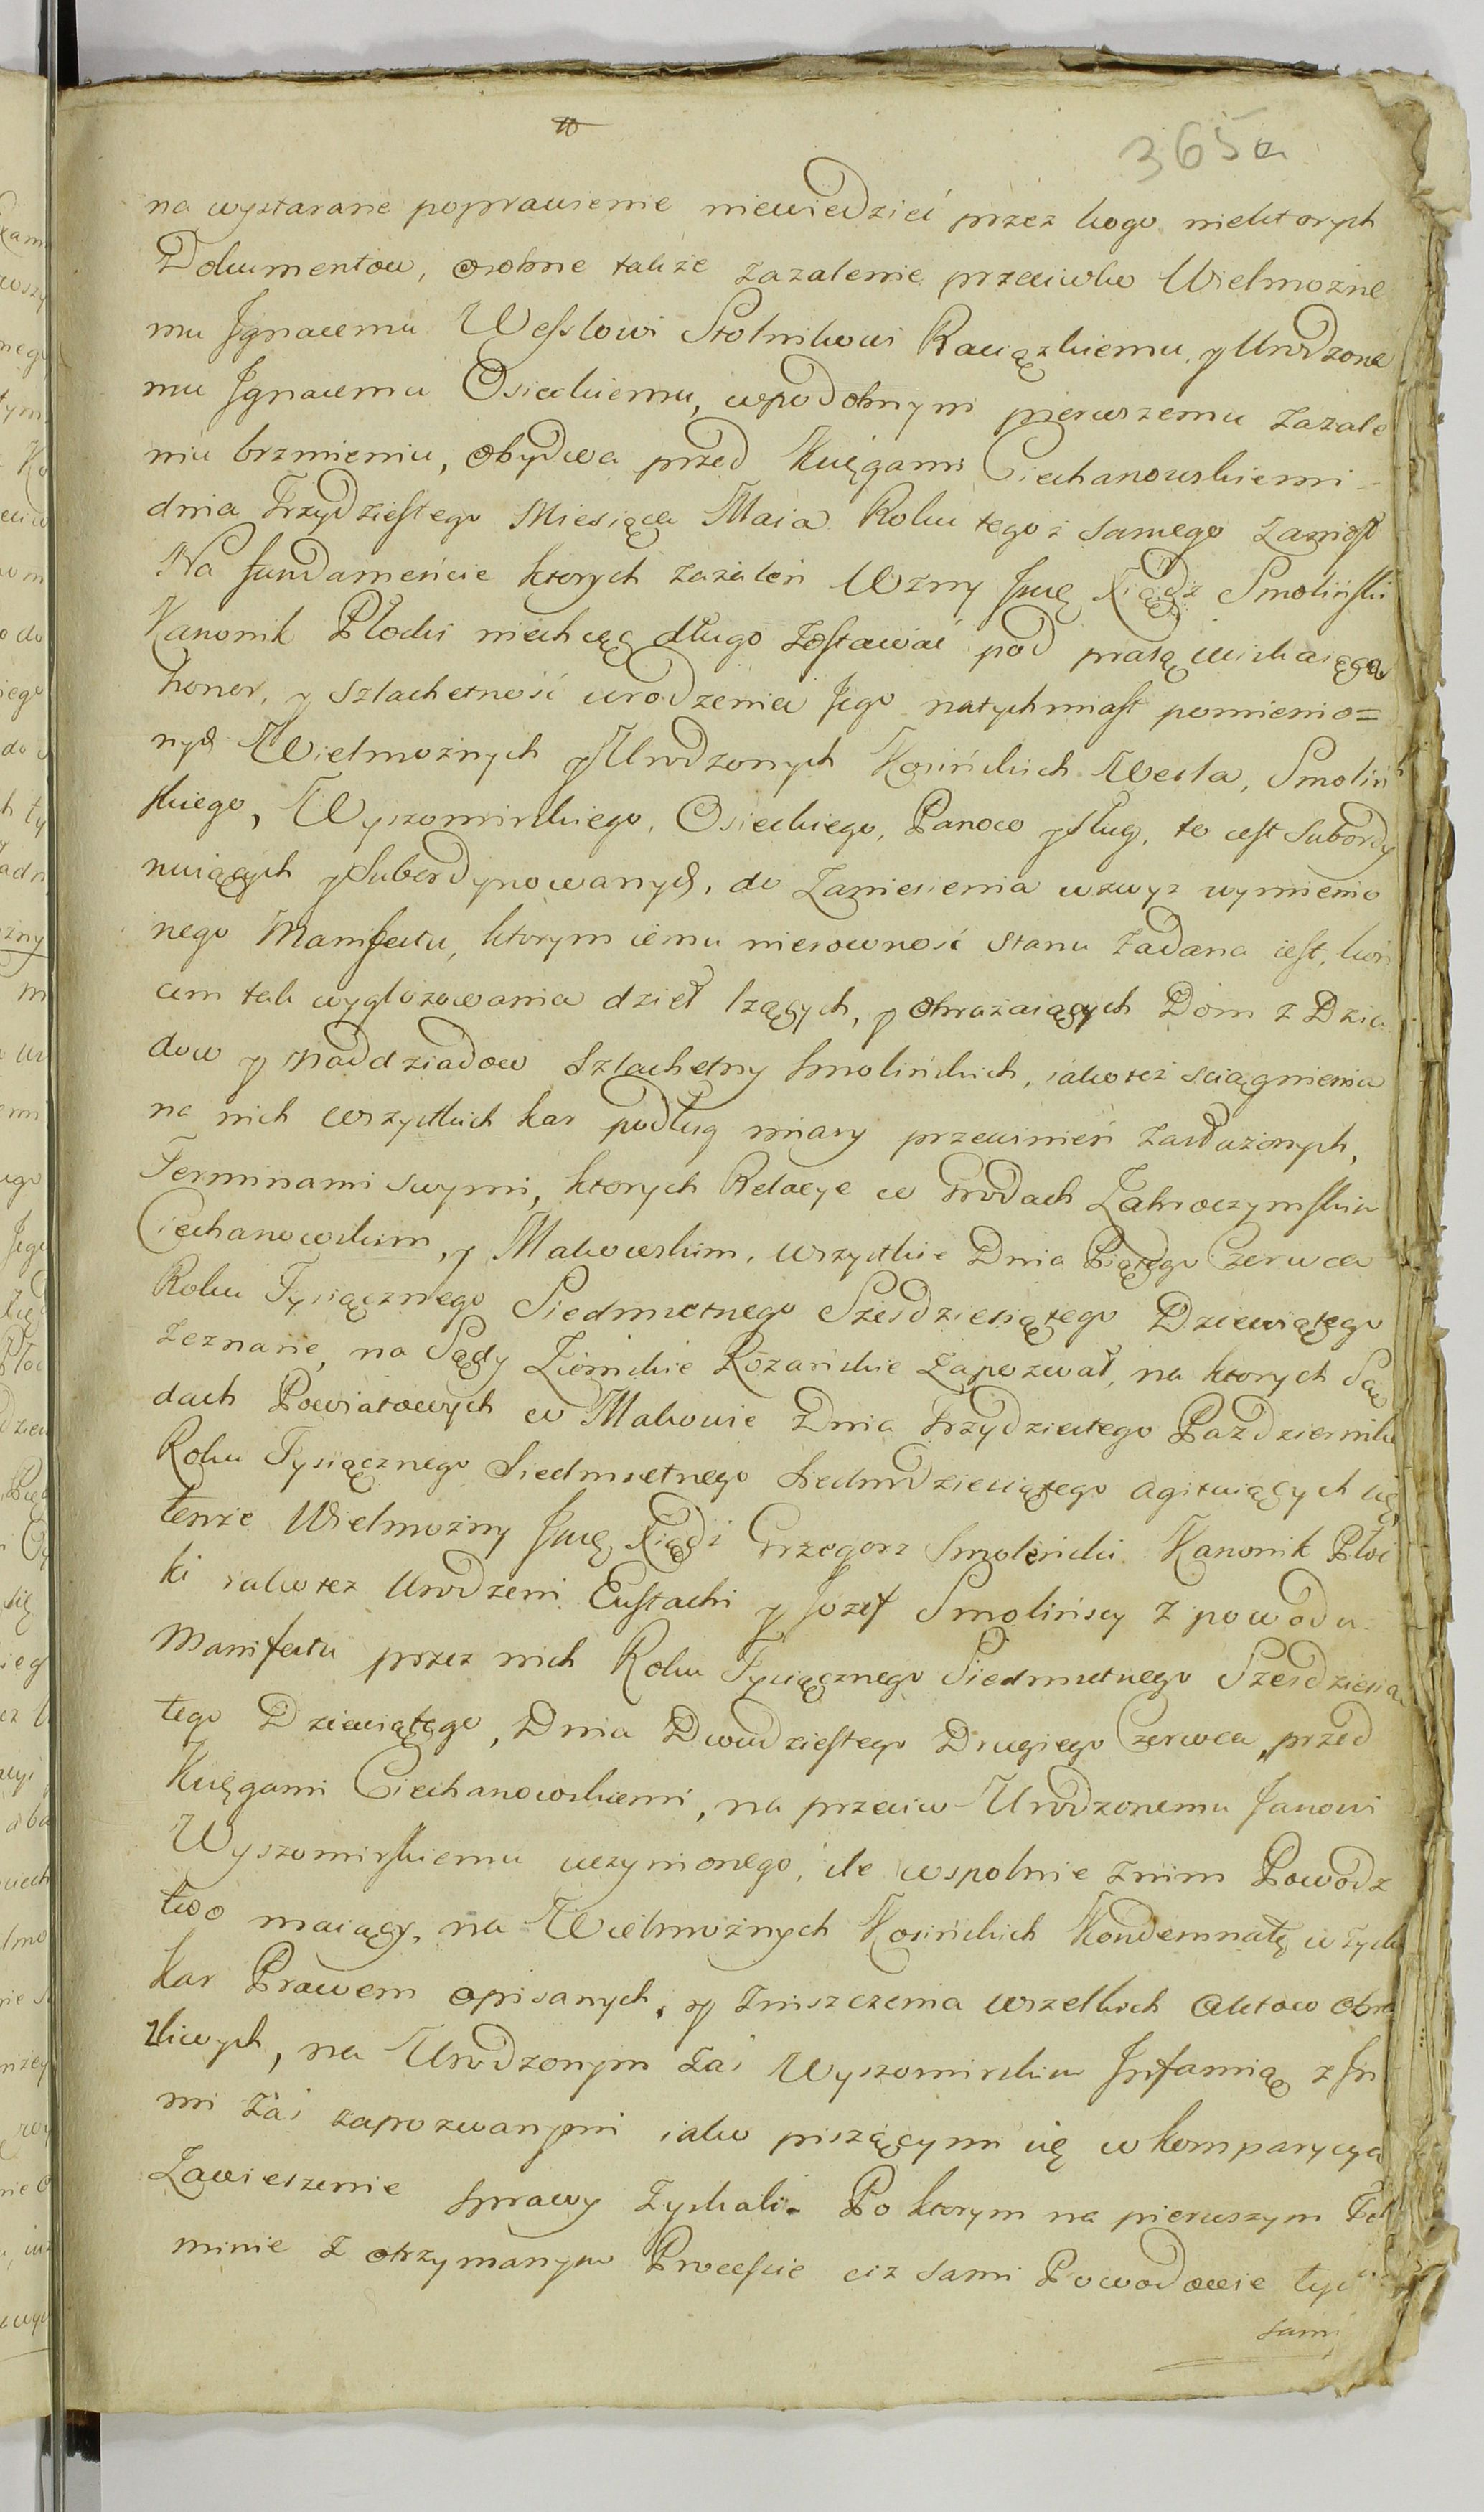 365a
na wystarane poprawienie niewiedzieć przez kogo niektorych
Dokumentow, osobne także zazalenie przeciwko Wielmożne
mu Jgnacemu Wesslowi Stolnikowi Raciązkiemu, y Urodzone
mu Jgnacemu Osieckiemu, wpodobnym pierwszemu zażale
niu brzmieniu, obydwa przed Xsięgami Ciechanowskiemi
dnia Trzydziestego Miesiąca Maia Roku tegoż samego zaniosł
Na fundamencie ktorych zażaleń Wzny Jmę Xiądz Smoliński
Kanonik Płocki niechcąc długo zostawać pod prasą
honor, y Szlachetność urodzenia Jego natychmiast pomienio=
nych Wielmożnych y Urodzonych Kosińskich Wesla, Smoliń
skiego, Wyszomirskiego, Osieckiego, Panow y Sług, to iest subordy
nuiących y Subordynowanych, do zaniesienia wzwyż wymienio
nego Manifestu, ktorym iemu nierowność stanu zadana iest, koń
cem tak wyglozowania dzieł lzących, y obrażaiących Dom z Dzia
dow y Naddziadow Szlachetny Smolińskich, iako też sciągnienia
na nich wszystkich kar podług miary przewinień zasłużonych,
Terminami swymi, ktorych Relacye w Grodach Zakroczymskim
Ciechanowskim, y Makowskim, wszystkie Dnia Piątego Czerwca
Roku Tysiącznego Siedmsetnego Sześdziesiątego Dziewiątego
zeznane, na Sądy Ziemskie Rożańskie zapozwał, na ktorych Są
dach Powiatowych w Makowie Dnia Trzydziestego Pazdziernika
Roku Tysiącznego Siedmsetnego Siedmdziesiątego agituiących się,
tenże Wielmożny Jmę Xiądz Grzegorz Smoliński Kanonik Płoc
ki iako też Urodzeni Eustachi y Jozef Smolińscy z powodu
Manifestu przez nich Roku Tysiącznego Siedmsetnego Sześdziesią
tego Dziewiątego, Dnia Dwudziestego Drugiego Czerwca, przed
Xsięgami Ciechanowskiemi, na przeciw Urodzonemu Janowi
Wyszomirskiemu uczynionego, ile wspolnie znim Powodz
two maiący, na Wielmożnych Kosińskich Kondemnatę w zysku
kar Prawem opisanych, y zniszczenia wszelkich aktow obra
zliwych, na Urodzonym zaś Wyszomirskim Jnfamią z Jn
mi zaś zapozwanymi iako piszącymi się w komparycyą
Zawieszenie sprawy zyskali. Po ktorym na pierwszym Ter
minie z otrzymanym Processie ciż sami Powodowie
sami